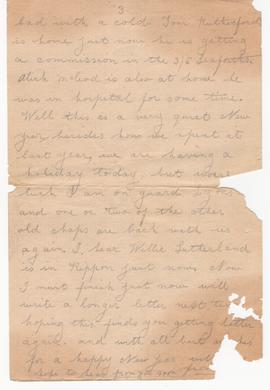 3
bad with a cold Tom Rutherford
is home just now he is getting
a commission in the 3/5 Seaforths.
Alick McLeod is also at home he
was in hospital for some time.
Well this is a very quiet New
year besides how we spent it
last year, we are having a
holiday today, but worse
luck I am on guard
and one or two of the other
old chaps are back with us
again. I hear Willie Sutherland
is in Rippon just now. Now
I must finish just now will
write a longer letter next
hoping this finds you getting better
again. and with all best
for a happy New Year
hope to hear from you soon from